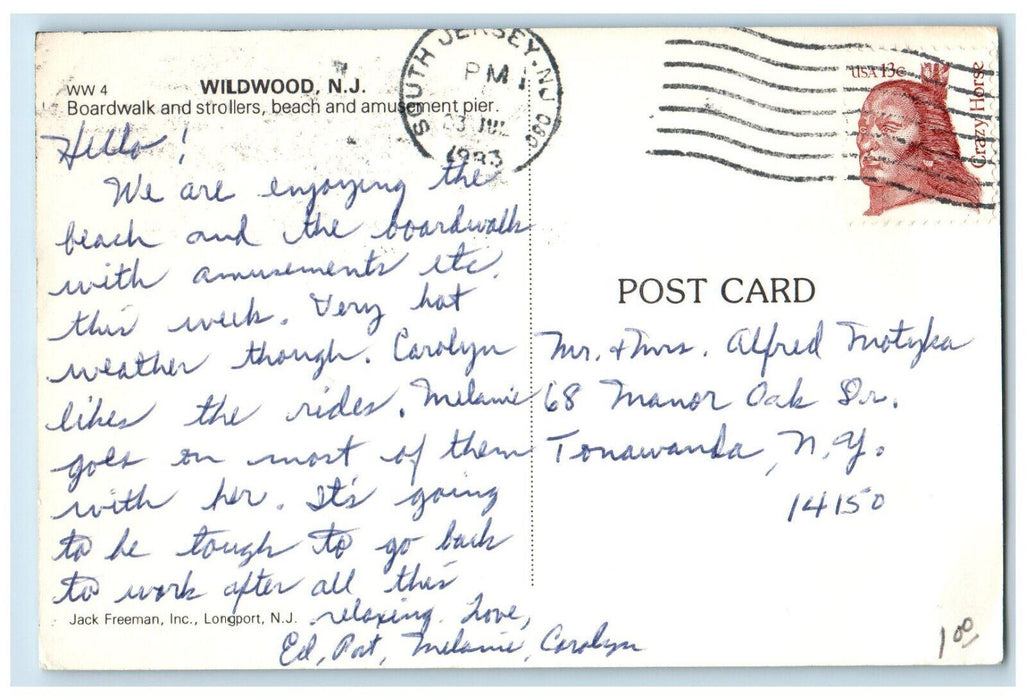 WW 4 WILDWOOD, N.J.
Boardwalk and strollers, beach and amusement pier.
Hello!
We are enjoying the
beach and the boardwalk
with amusements etc.
this week. Very hot
weather though. Carolyn
likes the rides. Melanie
goes on most of them
with her. It's going
to be tough to go back
to work after all this
relaxing. Love,
Ed, Pat, Melanie, Carolyn
Jack Freeman, Inc., Longport, N.J.
SOUTH JERSEY, NJ 080
PM
23 JUL
1983
USA 13c
Crazy Horse
POST CARD
Mr. & Mrs. Alfred Motyka
68 Manor Oak Dr.
Tonawanda, N.Y.
14150
1 00